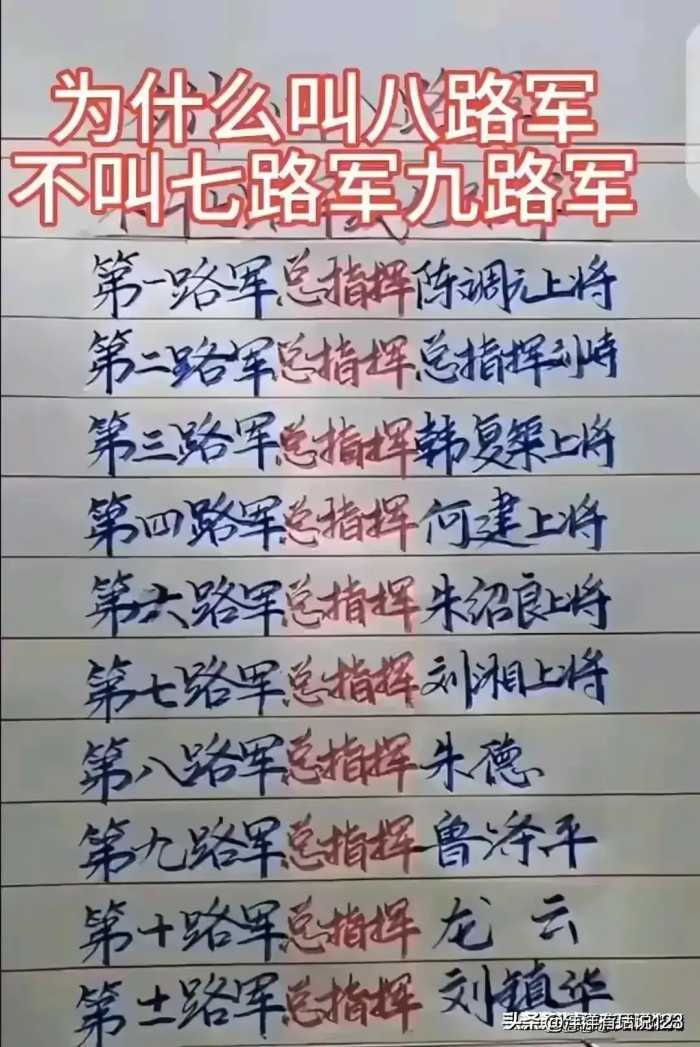 为什么叫八路军
不叫七路军九路军
第一路军总指挥陈调元上将
第二路军总指挥总指挥刘峙
第三路军总指挥韩复榘上将
第四路军总指挥何建上将
第六路军总指挥朱绍良上将
第七路军总指挥刘湘上将
第八路军总指挥朱德
第九路军总指挥鲁涤平
第十路军总指挥龙云
第十一路军总指挥刘镇华
头条